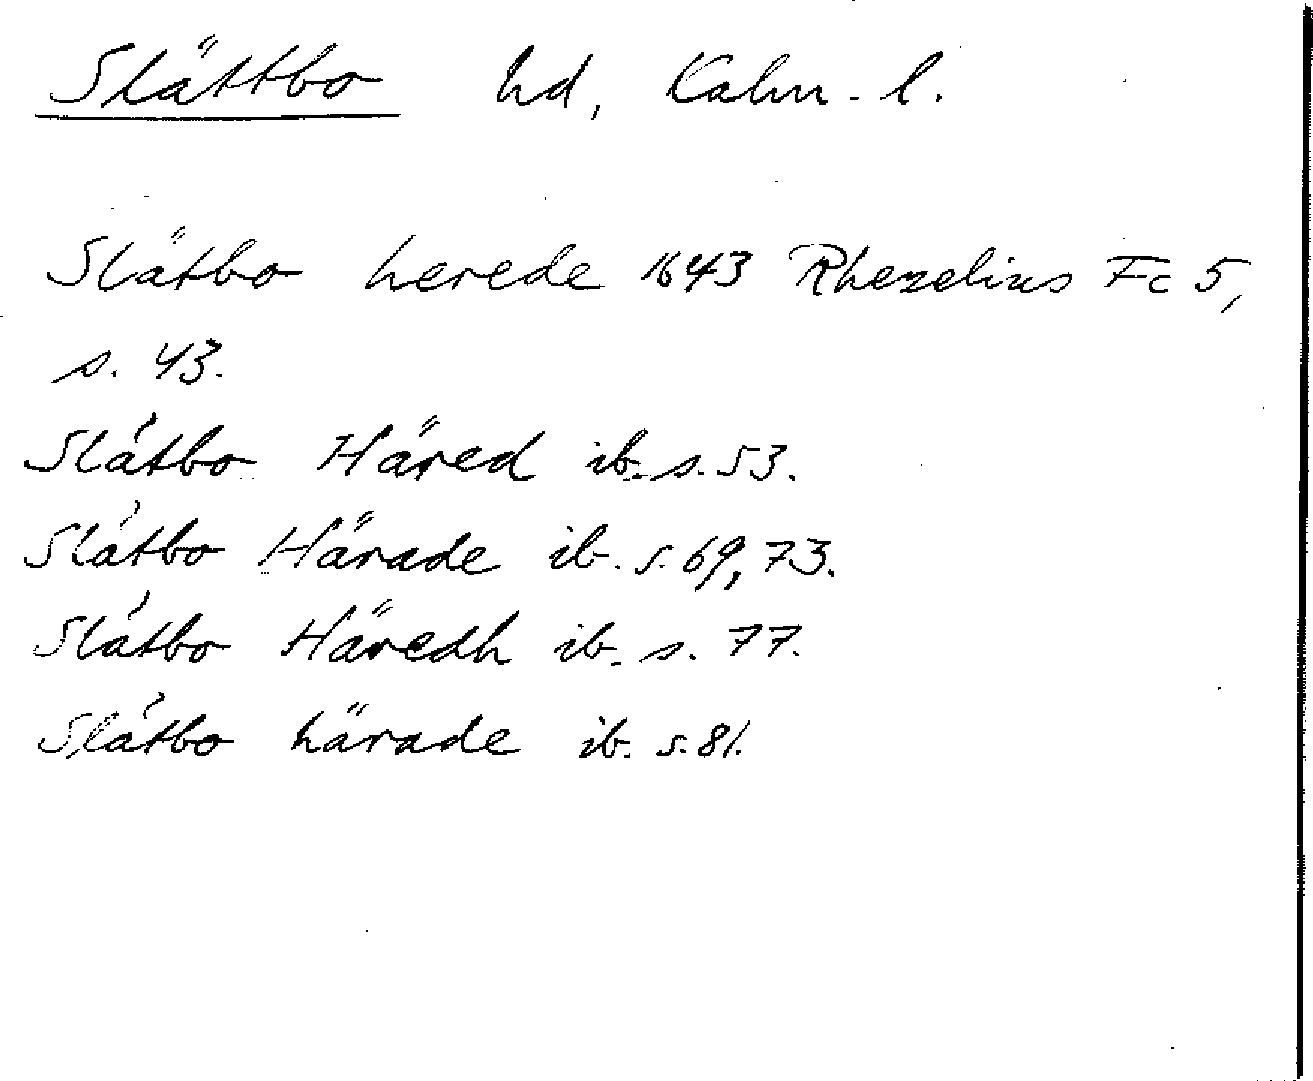 Slättbo hd, Kalm. l.
Slätbo herede 1643 Rhezelius Fc 5,
s. 43.
Slátbo Häred ib. s. 53.
Slátbo Härade ib. s. 69, 73.
Slátbo Häredh ib. s. 77.
Slátbo härade ib. s. 81.